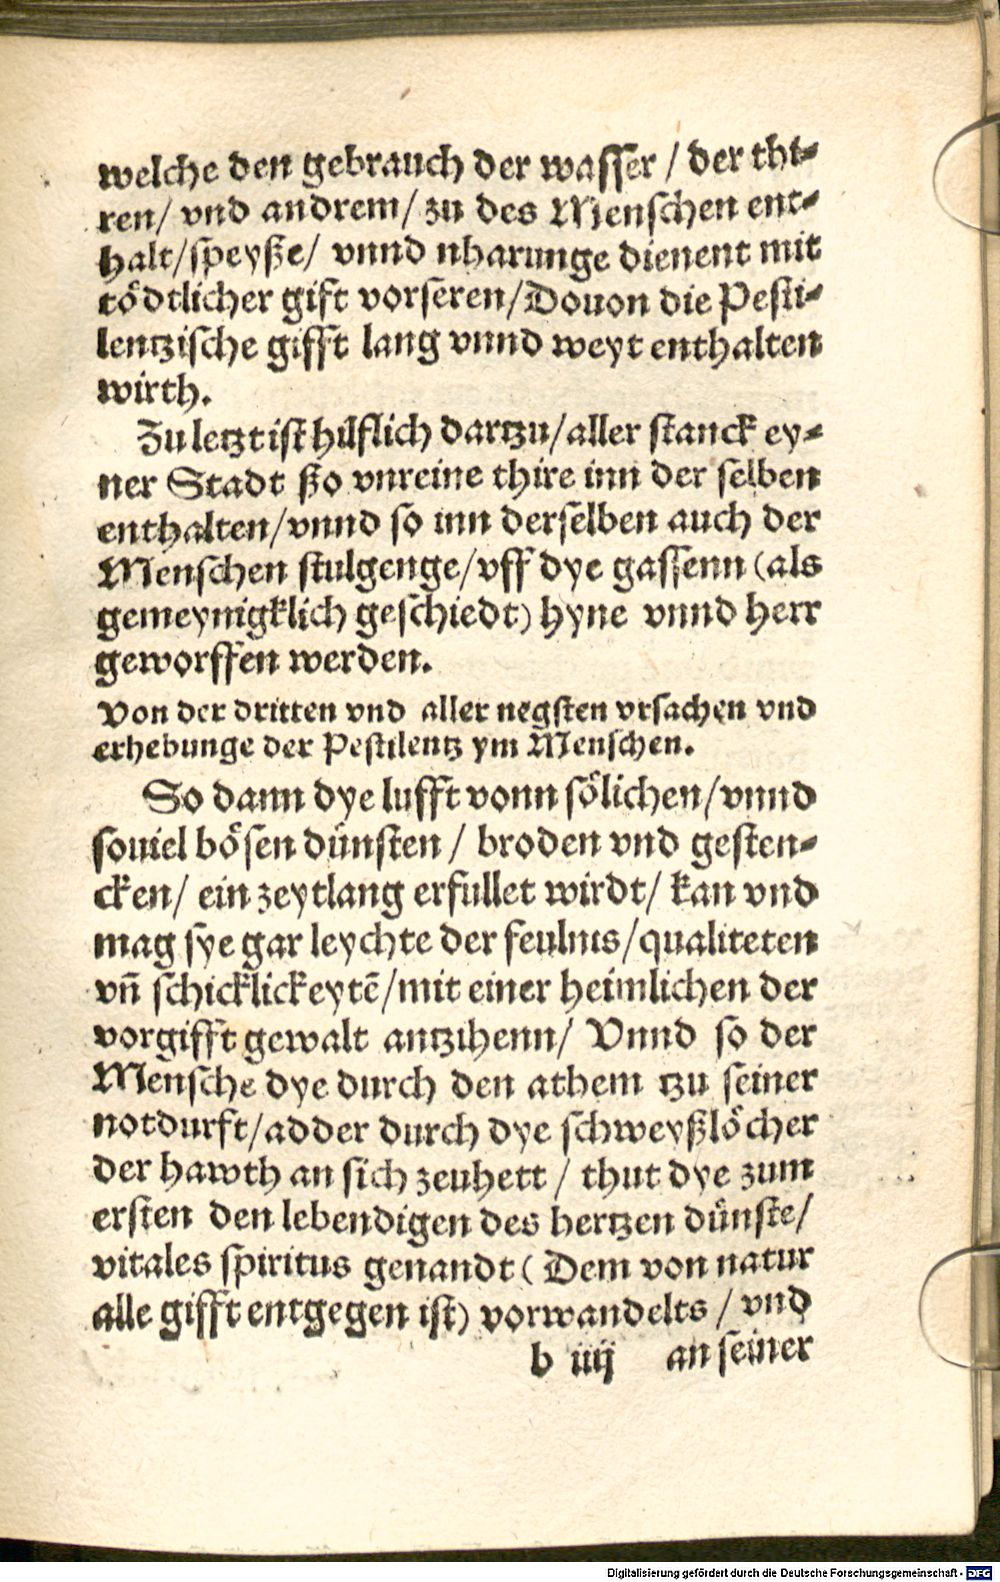 welche den gebrauch der wasser / der thi-
ren/ vnd andrem/ zu des Menschen ent-
halt/speyße/ vnnd nharunge dienent mit
tödtlicher gift vorseren/Douon die Pesti-
lentzische gifft lang vnnd weyt enthalten
wirth.
Zu letzt ist hilflich dartzu/aller stanck ey-
ner Stadt ßo vnreine thire inn der selben
enthalten/vnnd so inn derselben auch der
Menschen stulgenge/vff dye gassenn (als
gemeynigklich geschiedt) hyne vnnd herr
geworffen werden.
Von der dritten vnd aller negsten vrsachen vnd
erhebunge der Pestilentz ym Menschen.
So dann dye lufft vonn sölichen/vnnd
souiel bösen dünsten / broden vnd gesten-
cken/ ein zeytlang erfullet wirdt/ kan vnd
mag sye gar leychte der feulnis/qualiteten
vñ schicklickeytē/mit einer heimlichen der
vorgifft gewalt antzihenn/ Vnnd so der
Mensche dye durch den athem tzu seiner
notdurft/adder durch dye schweyßlöcher
der hawth an sich zeuhett / thut dye zum
ersten den lebendigen des hertzen dünste/
vitales spiritus genandt ( Dem von natur
alle gifft entgegen ist) vorwandelts / vnd
b iiij an seiner
Digitalisierung gefördert durch die Deutsche Forschungsgemeinschaft - DFG